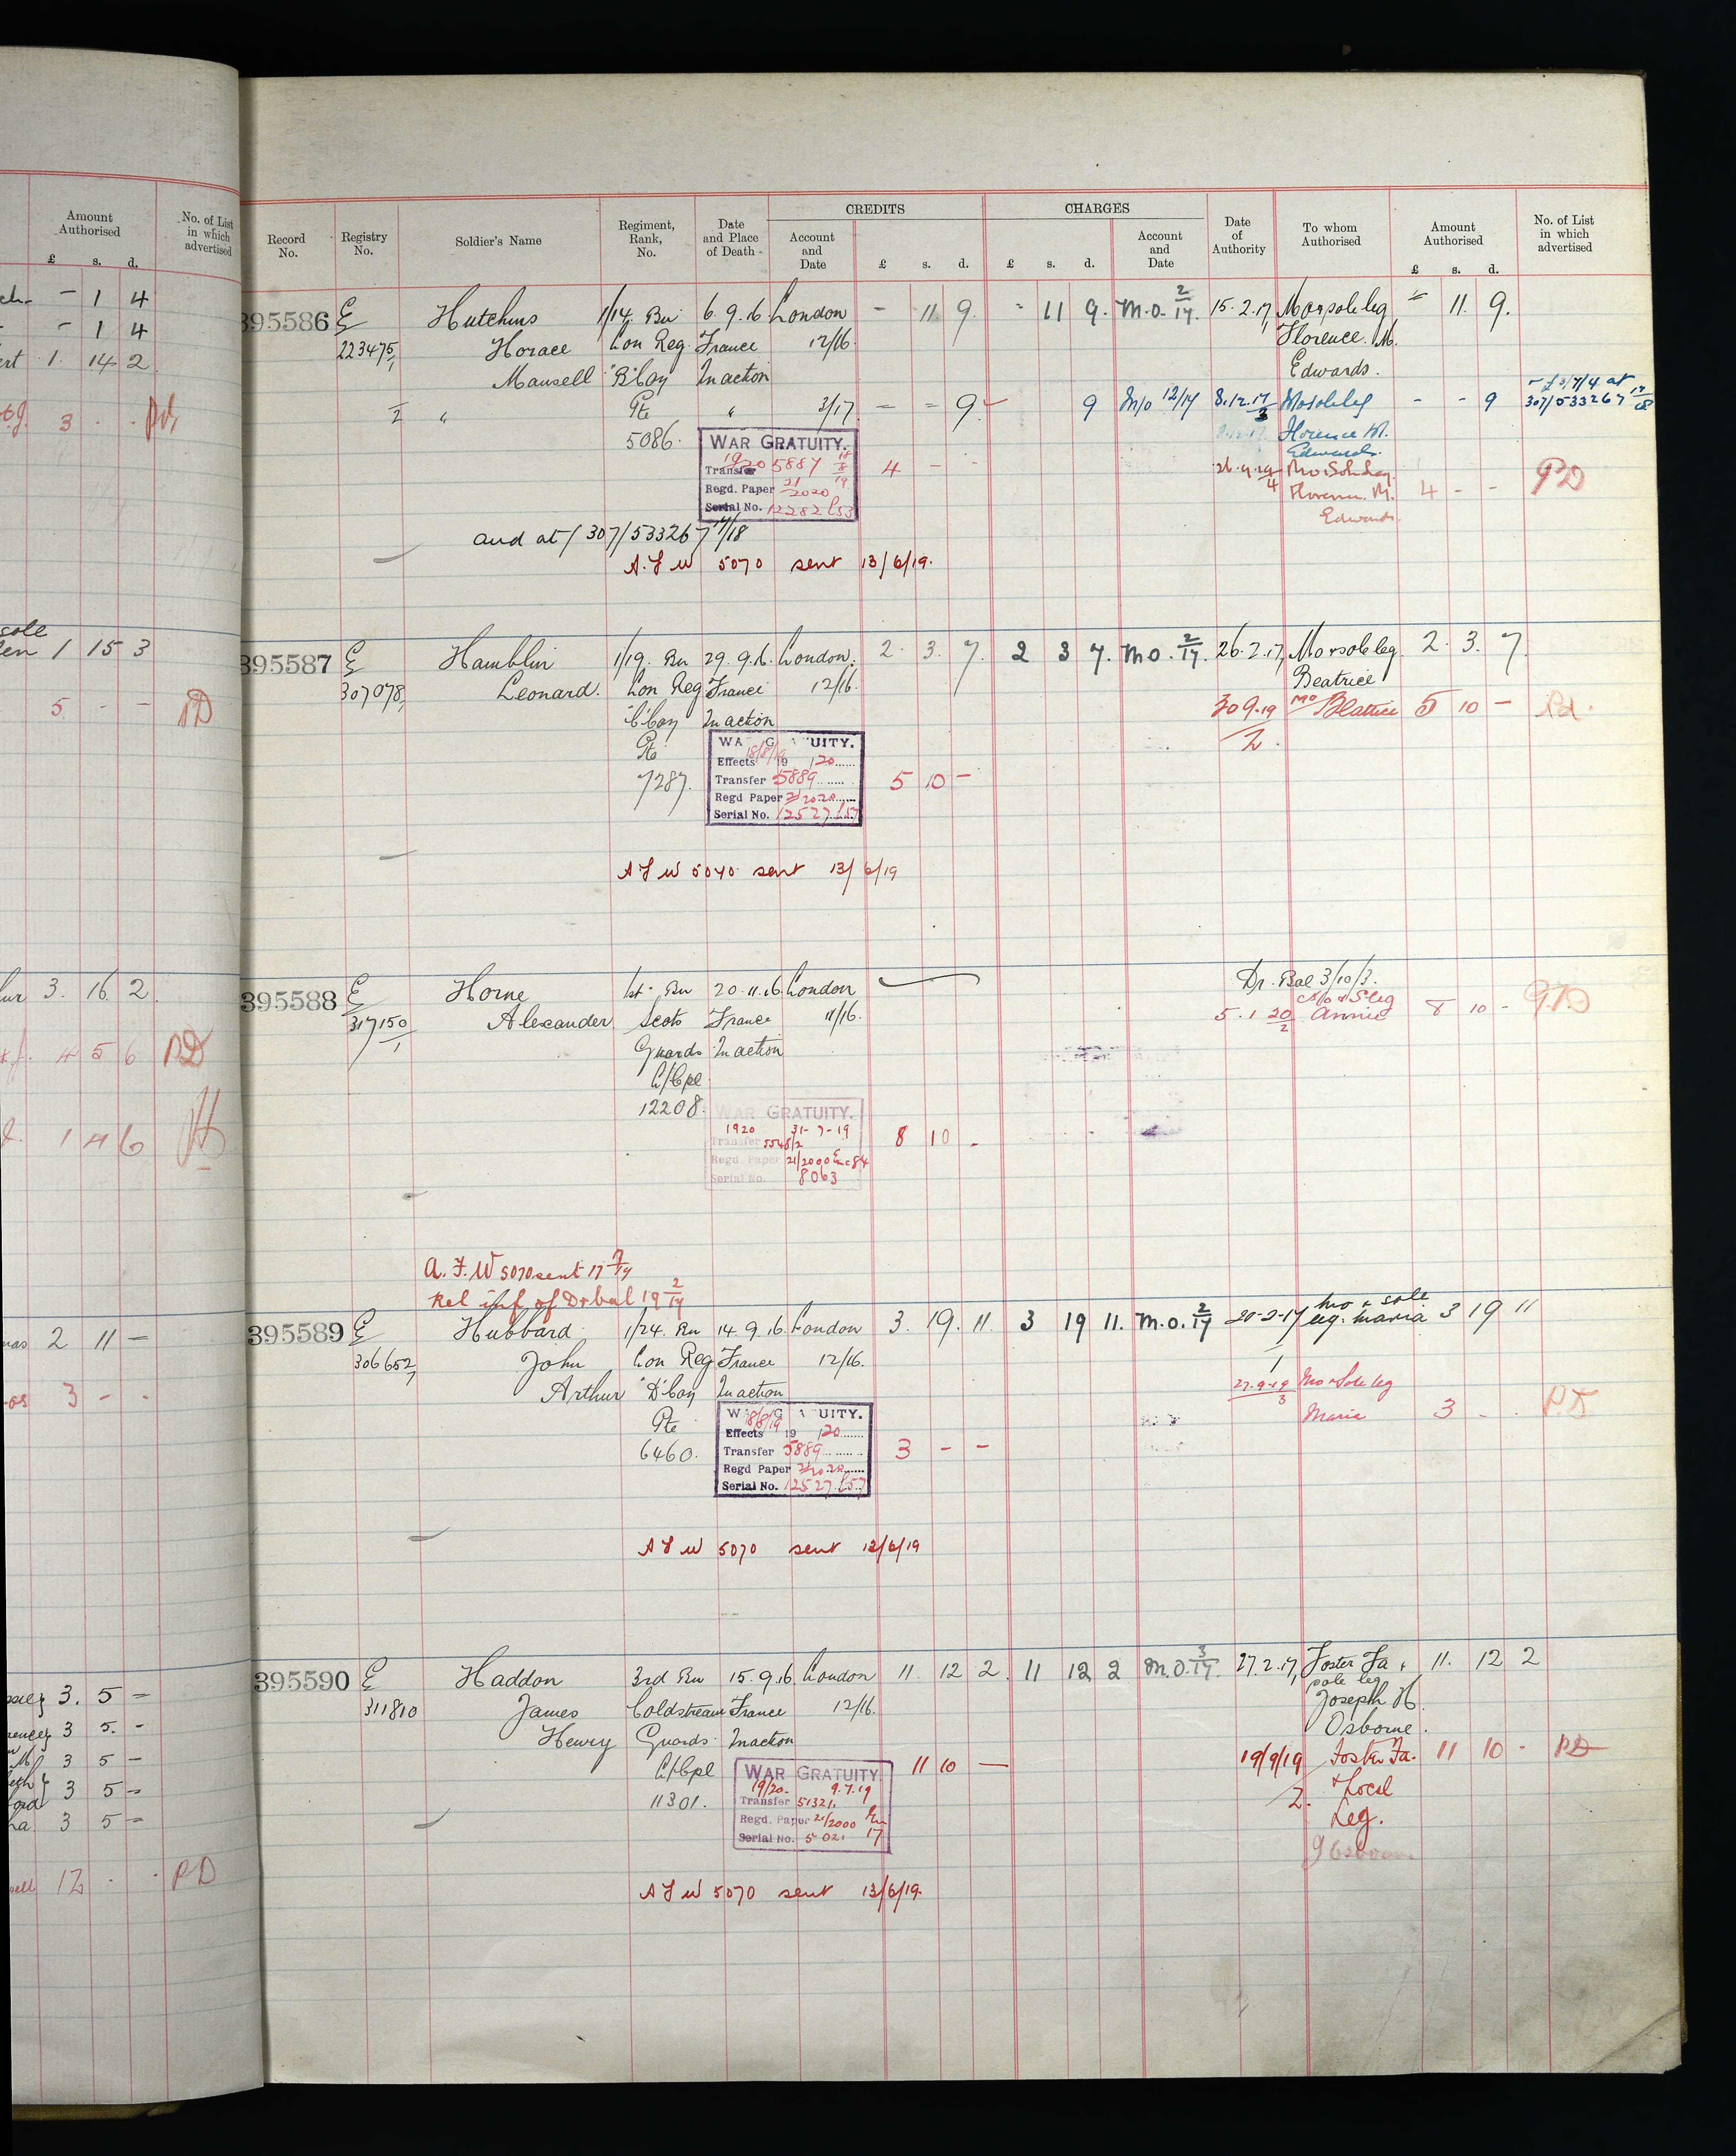 Amount Authorised
No. of List in which advertised
£ s. d.
- 1 4
- 1 4
1. 14 2
3 . .
sole
1 15 3
5. - - PD
3. 16 2
4 5 6 PD
1 4 6
2 11 -
3 - -
3. 5 =
3 5. -
3 5 -
3 5 =
3 5 =
12 . . PD
Record No.
Registry No.
Soldier's Name
Regiment, Rank, No.
Date and Place of Death
CREDITS
Account and Date
£ s. d.
CHARGES
£ s. d.
Account and Date
Date of Authority
To whom Authorised
Amount Authorised
£ s. d.
No. of List in which advertised
395586 E Hutchins 1/14. Bn 6.9.16 London - 11 9. - 11 9. M.O. 2/17. 15.2.17, Mo & sole leg = 11. 9.
223475/1 Horace Lon Reg France 12/16. Florence. M.
Mansell "B" Coy In action Edwards.
2 " Pte " 3/17 - - 9 9 M/o 12/17 8.12.17/3 Mo sole leg - - 9 - £3/7/4 at 307/533267
5086. Florence M. Edwards.
WAR GRATUITY.
1920 5887 4 - - 26.9.19/4 Mo & Sole Leg. 4 - - PD
Transfer Florence. M.
Regd. Paper 21/2020 Edwards.
Serial No. 12282
and at / 307/533267 17/18
A.F.W 5070 sent 13/6/19.
395587 E Hamblin 1/19. Bn 29.9.16. London. 2. 3. 7. 2 3 7. M.O. 2/17. 26.2.17, Mo & sole leg. 2. 3. 7.
307078, Leonard. Lon Reg France 12/16. Beatrice
"C" Coy In action 30 9.19/2. Mo Beatrice 5 10 -
Pte
7287.
WAR GRATUITY.
18/8/19
Effects 19 /20
Transfer 5889 5 10 -
Regd Paper 21/2020
Serial No. 12527/57
A F W 5070 sent 13/6/19
395588 E Horne 1st Bn 20.11.16 London Dr. Bal 3/10/3.
317150/1 Alexander Scots France 11/16. 5.1 20/2 Mo & S leg Annie 8 10 -
Guards In action
L/Cpl
12208.
WAR GRATUITY.
1920 31-7-19 8 10 -
Transfer 5545/2
Regd. Paper 21/2000 84
Serial No. 8063
A.F.W 5070 sent 17 7/19
Rel inf of Dr bal 19 2/17
395589 E Hubbard 1/24. Bn 14.9.16. London 3. 19. 11. 3 19 11. M.O. 2/17 20-2-17/1 Mo & sole leg. Maria 3 19 11
306652, John Lon Reg France 12/16.
Arthur "D" Coy In action 27.9.19/3 Mo & Sole leg
Pte Maria 3 - .
6460.
WAR GRATUITY.
18/8/19
Effects 19 /20
Transfer 5889 3 - -
Regd Paper 21/2020
Serial No. 12527/57
A F W 5070 sent 13/6/19
395590 E Haddon 3rd Bn 15.9.16 London 11. 12 2. 11 12 2 M.O. 3/17. 27.2.17, Foster Fa & 11. 12 2
311810 James Coldstream France 12/16. sole leg
Henry Guards In action Joseph H.
Osborne.
L/Cpl 11 10 - 19/9/19 Foster Fa. 11 10 - PD
11301. 2. & Local
Leg.
WAR GRATUITY
19/20. 9.7.19
Transfer 51321.
Regd. Paper 21/2000
Serial No. 5021 17
A F W 5070 sent 13/6/19.